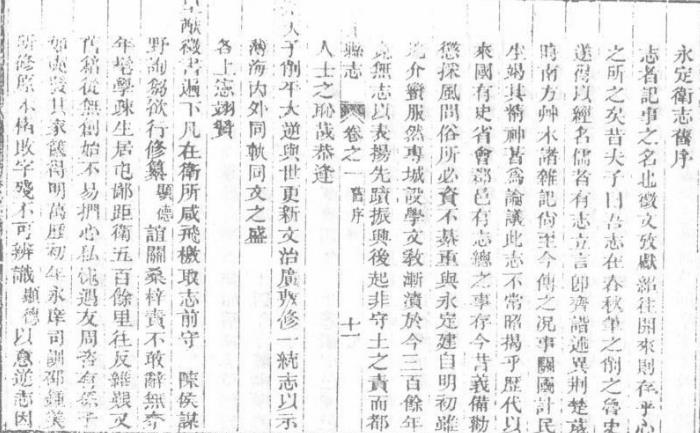 永定衛志舊序
志者記事之名北徵文攷獻紹往開來則存乎心
之所之矣昔夫子曰吾志在春秋筆之削之魯史
遂得以經名儒者有志立言即齊諧述異荆楚歲
時南方艸木諸雜記尚至今傳之况事關國計民
生竭其精神萃為論議此志不常昭揭乎歷代以
來國有史省會郡邑有志總之事存今昔義備勸
懲採風問俗所必資不綦重與永定建自明初雖
介 服然專城設學文敎漸漬於今三百餘年
無志以表揚先蹟振興後起非守土之責而都
縣志 卷之一 舊序 十一
人士之恥哉恭逢
天子削平大逆與世更新文治廣敷修一統志以示
海內外同軌同文之盛
各上憲翊贊
獻徵書遍下凡在衛所咸飛檄取志前守 陳侯謀
野詢芻欲行修纂顯德誼關桑梓責不敢辭無奈
年 學疎生居屯鄖距衛五百餘里往反維艱又
舊籍從無創始不易捫心私 遇友周咨有孫子
如 發其家 得明萬曆初年永庠司訓邵鍾美
所修原本格敗字殘不可辨識顯德以意逆志因